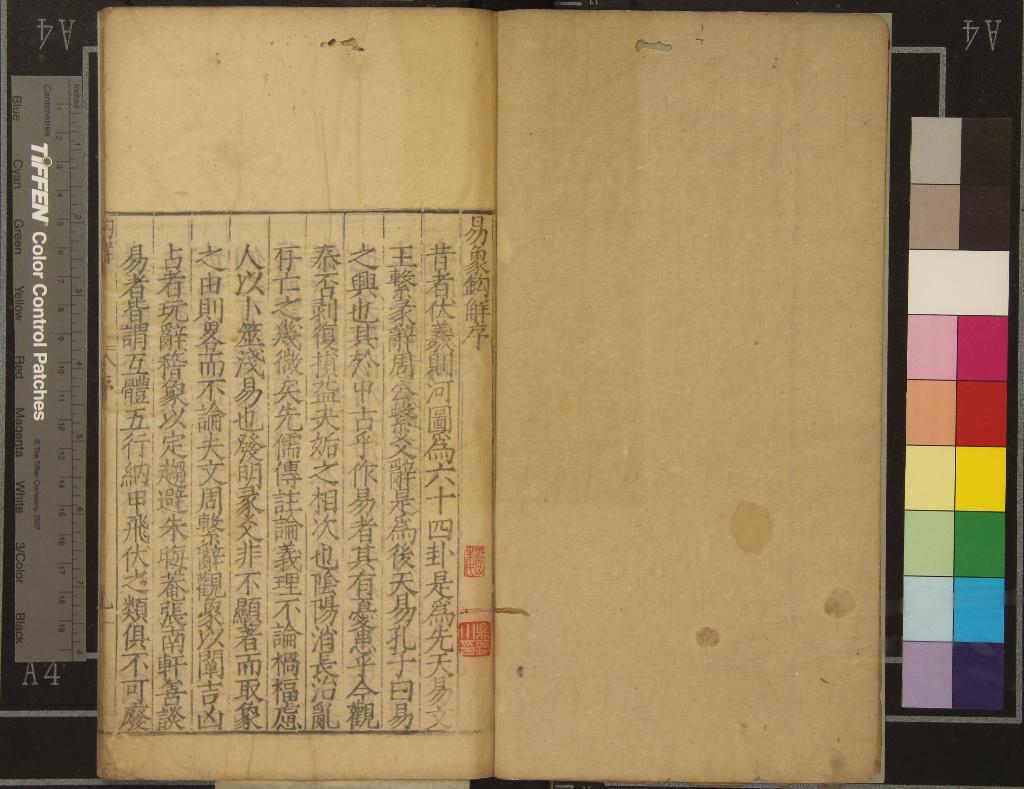 易象鈎解序
昔者伏羲則河圖為六十四卦是為先天易文
王繫彖辭周公繫爻辭是為後天易孔子曰易
之興也其於中古乎作易者其有憂患乎今觀
泰否剥復損益夬姤之相次也陰陽消長治亂
存亡之幾微矣先儒傳註論義理不論禍福慮
人以卜筮淺易也發明彖爻非不顯著而取象
之由則畧而不論夫文周繫辭觀象以闡吉凶
占者玩辭稽象以定趨避朱晦菴張南軒善談
易者皆謂互體五行納甲飛伏之類俱不可廢
序
A4
A4
A4
Inches
Centimetres
TIFFEN Color Control Patches
© The Tiffen Company, 2007
Blue Cyan Green Yellow Red Magenta White 3/Color Black
1 2 3 4 5 6 7 8 9 10 11 12 13 14 15 16 17 18 19
1 2 3 4 5 6 7 8